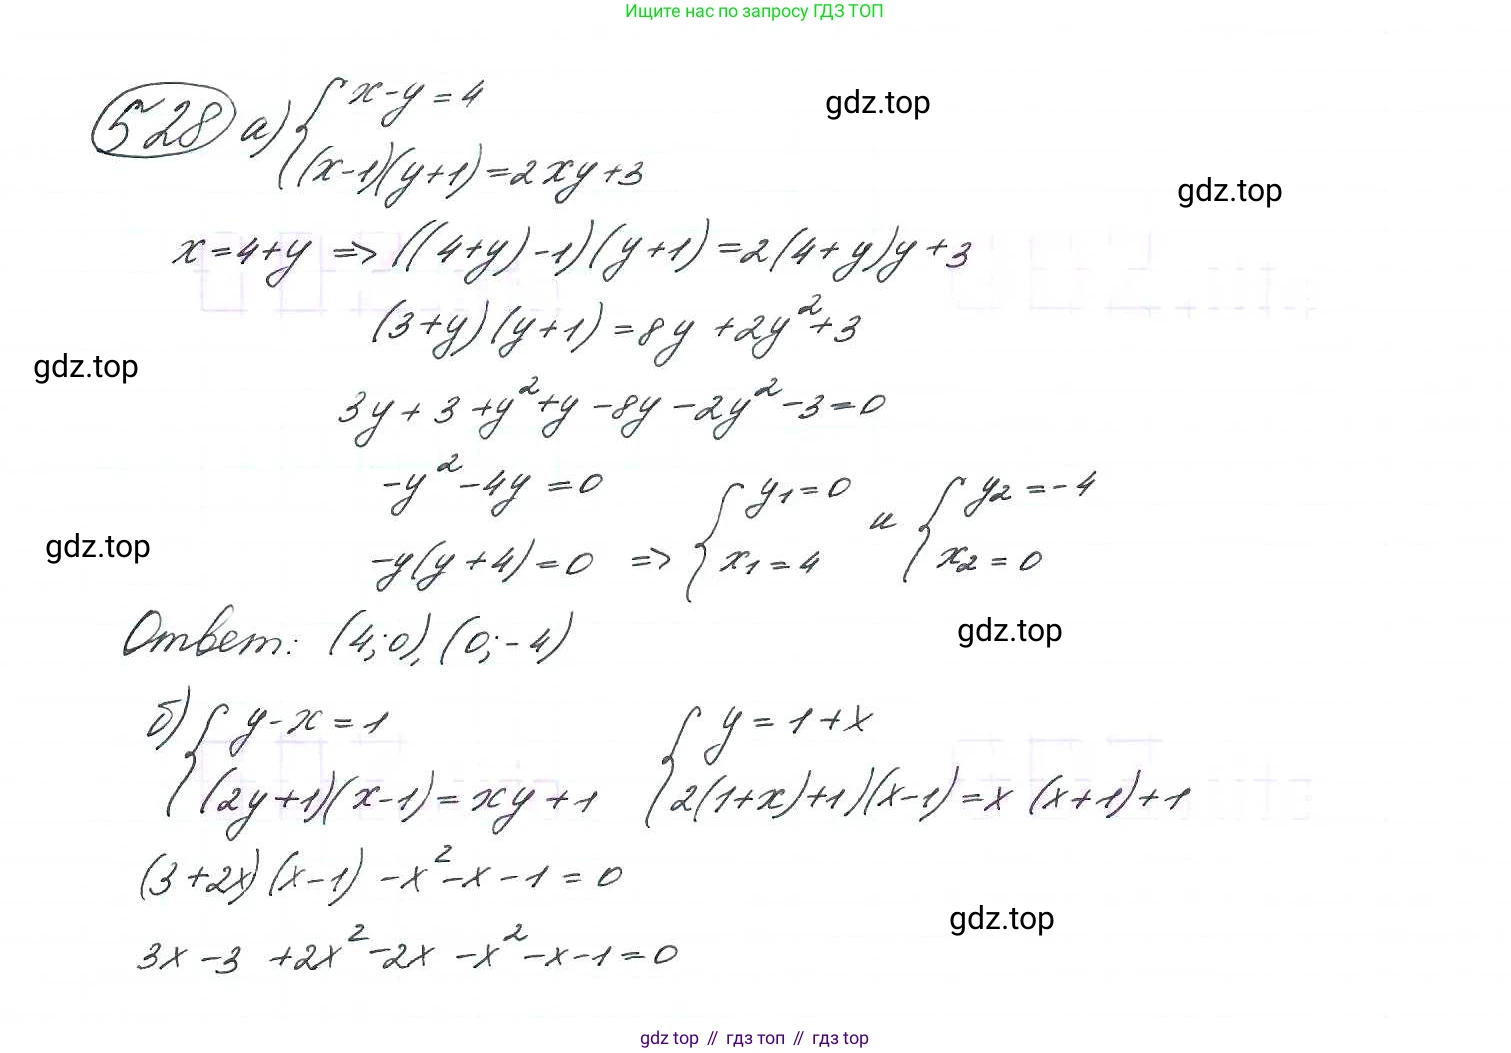 Ищите нас по запросу ГДЗ ТОП
528 а) { x-y=4
(x-1)(y+1)=2xy+3
gdz.top
gdz.top
x=4+y => ((4+y)-1)(y+1)=2(4+y)y+3
(3+y)(y+1)=8y+2y²+3
gdz.top
3y+3+y²+y-8y-2y²-3=0
-y²-4y=0
-y(y+4)=0 => { y₁=0 x₁=4 и { y₂=-4 x₂=0
gdz.top
Ответ: (4;0), (0;-4)
gdz.top
б) { y-x=1 { y=1+x
(2y+1)(x-1)=xy+1 2(1+x)+1)(x-1)=x(x+1)+1
(3+2x)(x-1)-x²-x-1=0
gdz.top
3x-3+2x²-2x-x²-x-1=0
gdz top // гдз топ // gdz top